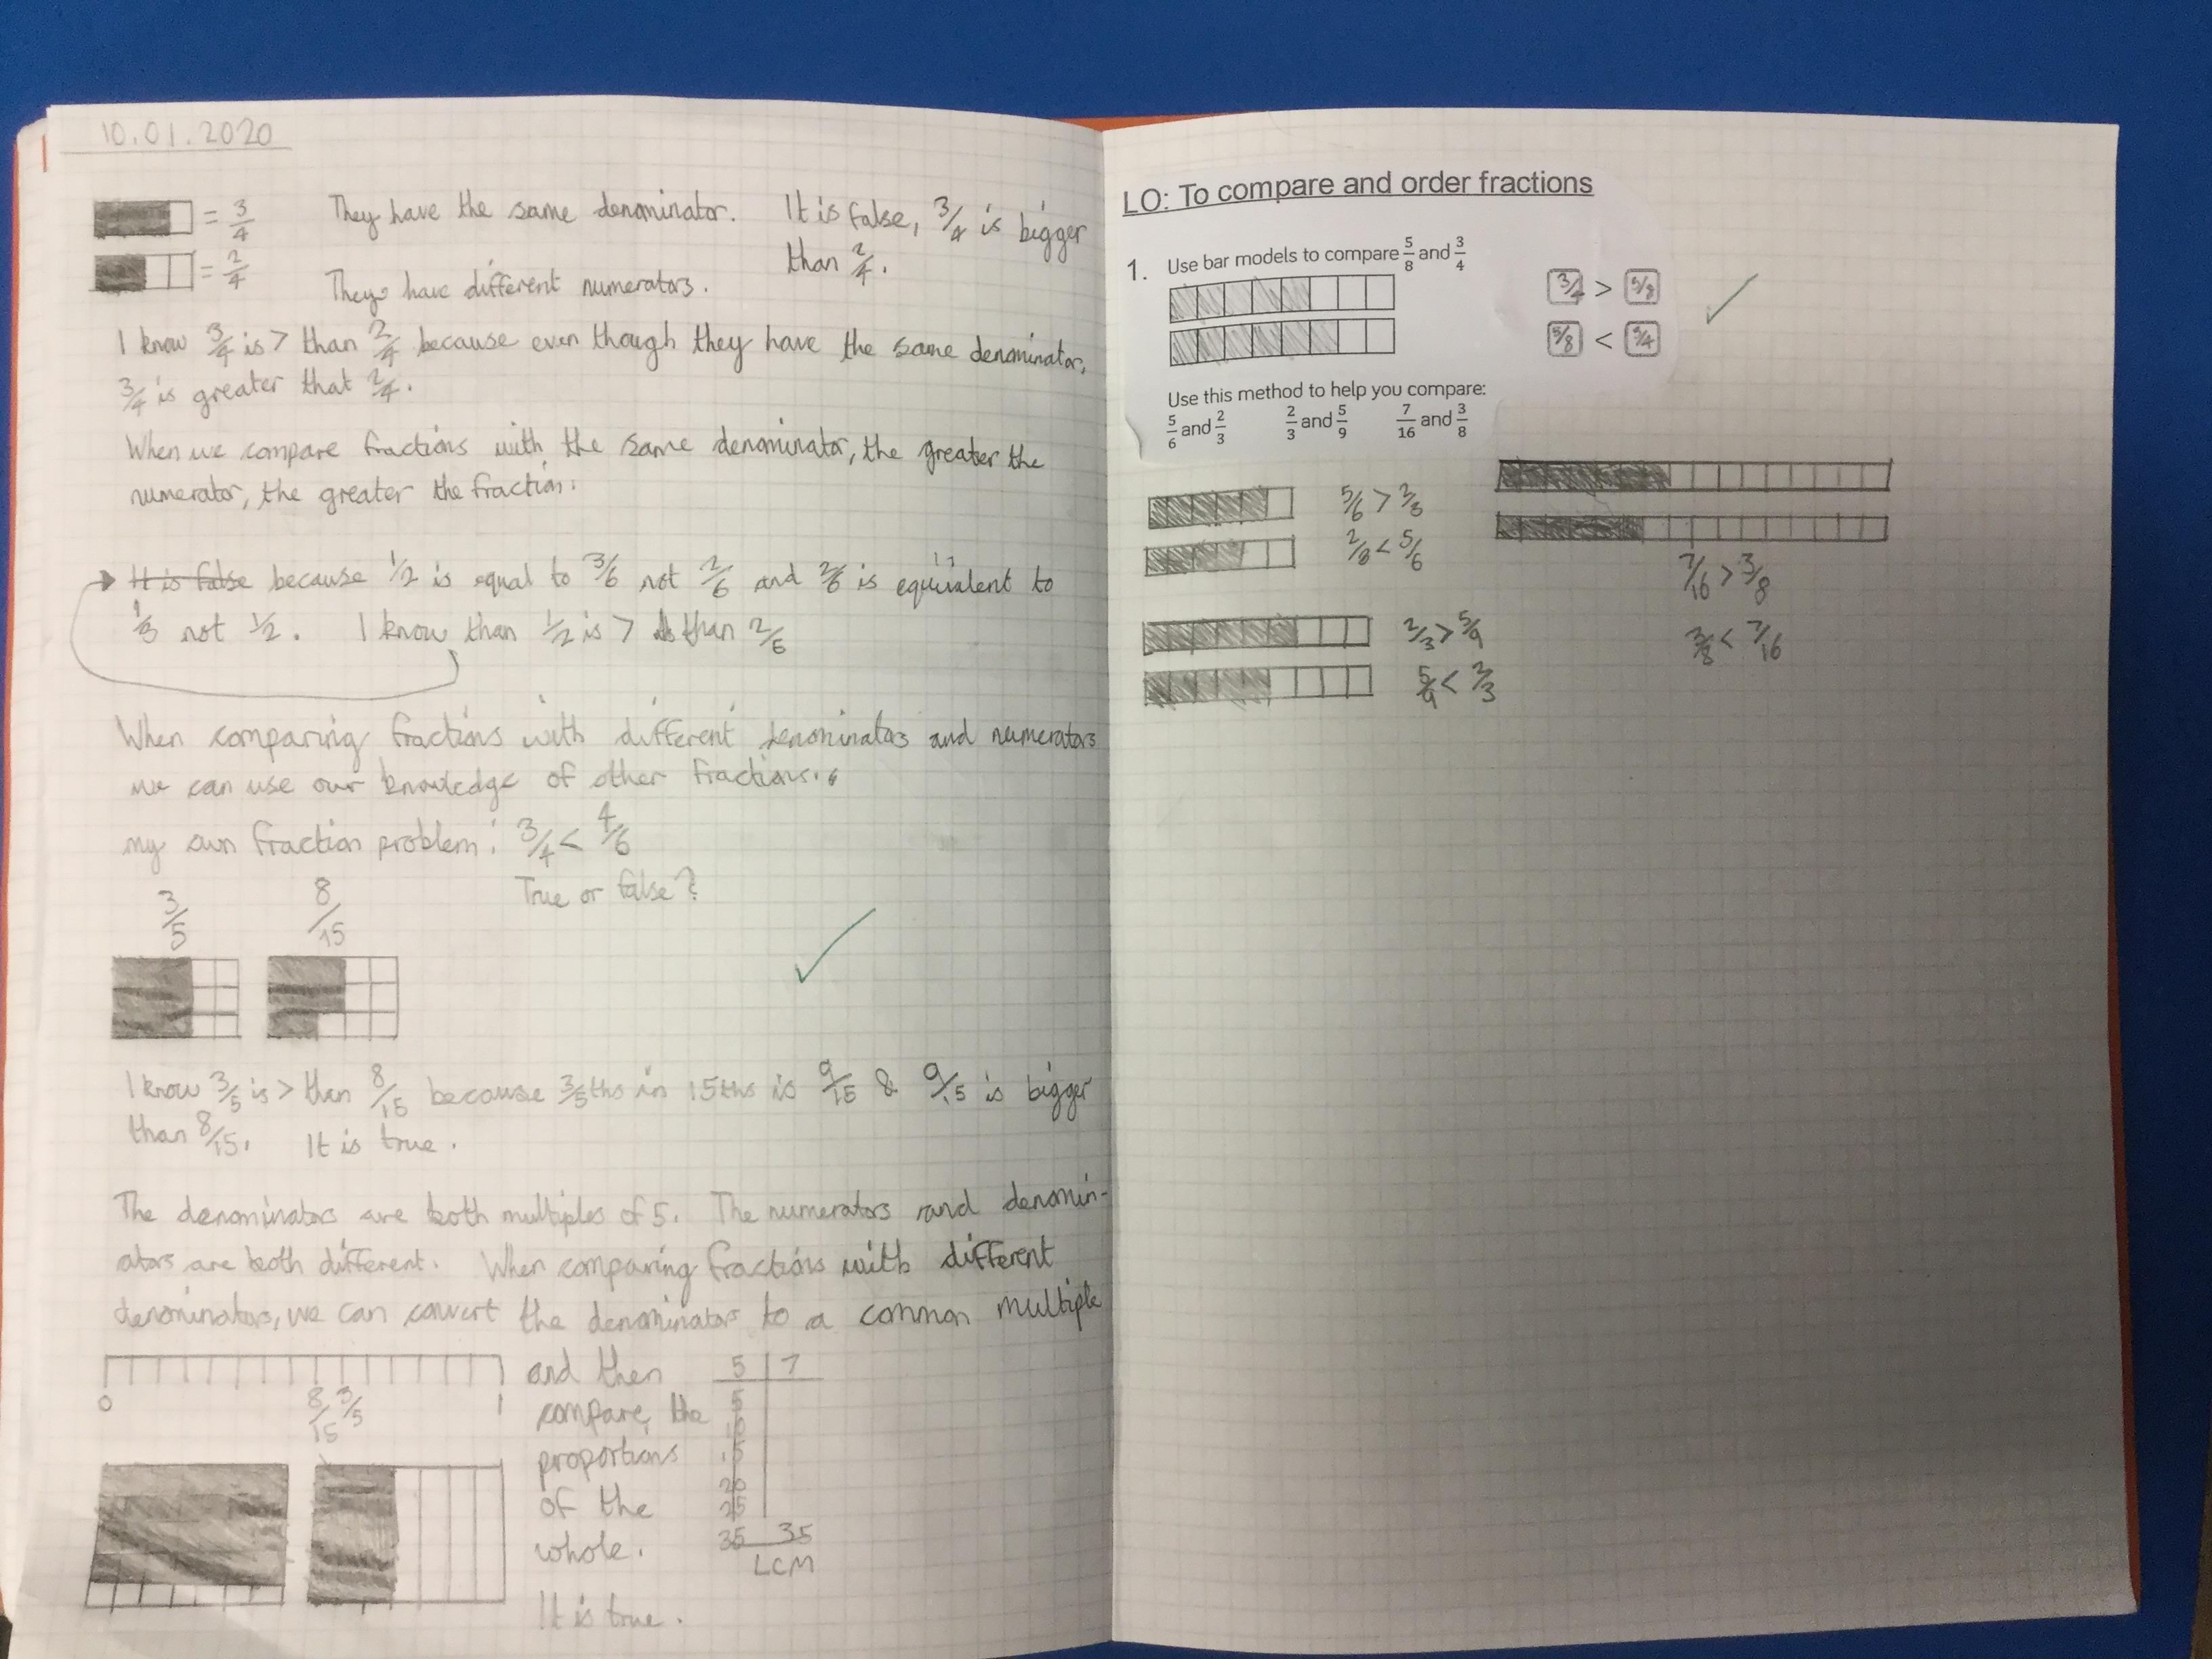 10.01.2020
= 3/4 They have the same denominator. It is false, 3/4 is bigger
than 2/4.
= 2/4 They have different numerators.
I know 3/4 is > than 2/4 because even though they have the same denominator,
3/4 is greater that 2/4.
When we compare fractions with the same denominator, the greater the
numerator, the greater the fraction.
It is false because 1/2 is equal to 3/6 not 2/6 and 2/6 is equivalent to
1/3 not 1/2. I know than 1/2 is > than 2/6
When comparing fractions with different denominators and numerators
we can use our knowledge of other fractions.
my own fraction problem: 3/4 < 4/6
True or false?
3/5 8/15
I know 3/5 is > than 8/15 because 3/5ths in 15ths is 9/15 & 9/15 is bigger
than 8/15. It is true.
The denominators are both multiples of 5. The numerators and denomin-
ators are both different. When comparing fractions with different
denominators, we can convert the denominators to a common multiple
and then
compare the
proportions
of the
whole.
It is true.
0 8/15 3/5 1
5 7
5
10
15
20
25
35 35
LCM
LO: To compare and order fractions
1. Use bar models to compare 5/8 and 3/4
3/4 > 5/8
5/8 < 3/4
Use this method to help you compare:
5/6 and 2/3 2/3 and 5/9 7/16 and 3/8
5/6 > 2/3
2/3 < 5/6
7/16 > 3/8
3/8 < 7/16
2/3 > 5/9
5/9 < 2/3